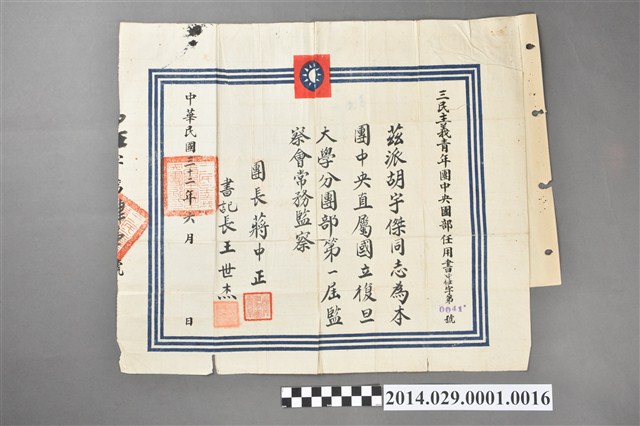 三民主義青年團中央團部任用書中任字第0041號
茲派胡宇傑同志為本
團中央直屬國立復旦
大學分團部第一屆監
察會常務監察
團長 蔣中正
書記長 王世杰
中華民國三十二年六月 日
2014.029.0001.0016